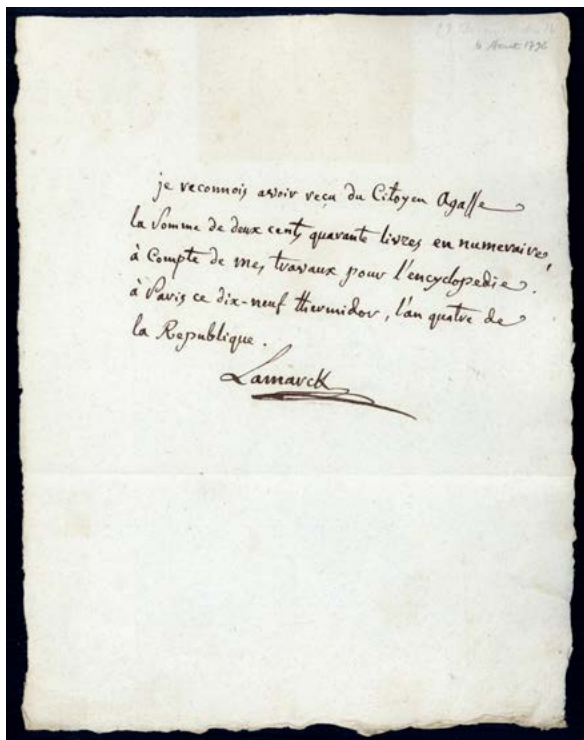 6 Aout 1796
je reconnois avoir reçu du Citoyen Agasse
la Somme de deux cents quarante livres en numeraire,
à Compte de mes travaux pour l'encyclopedie.
à Paris ce dix-neuf thermidor, l'an quatre de
la Republique.
Lamarck